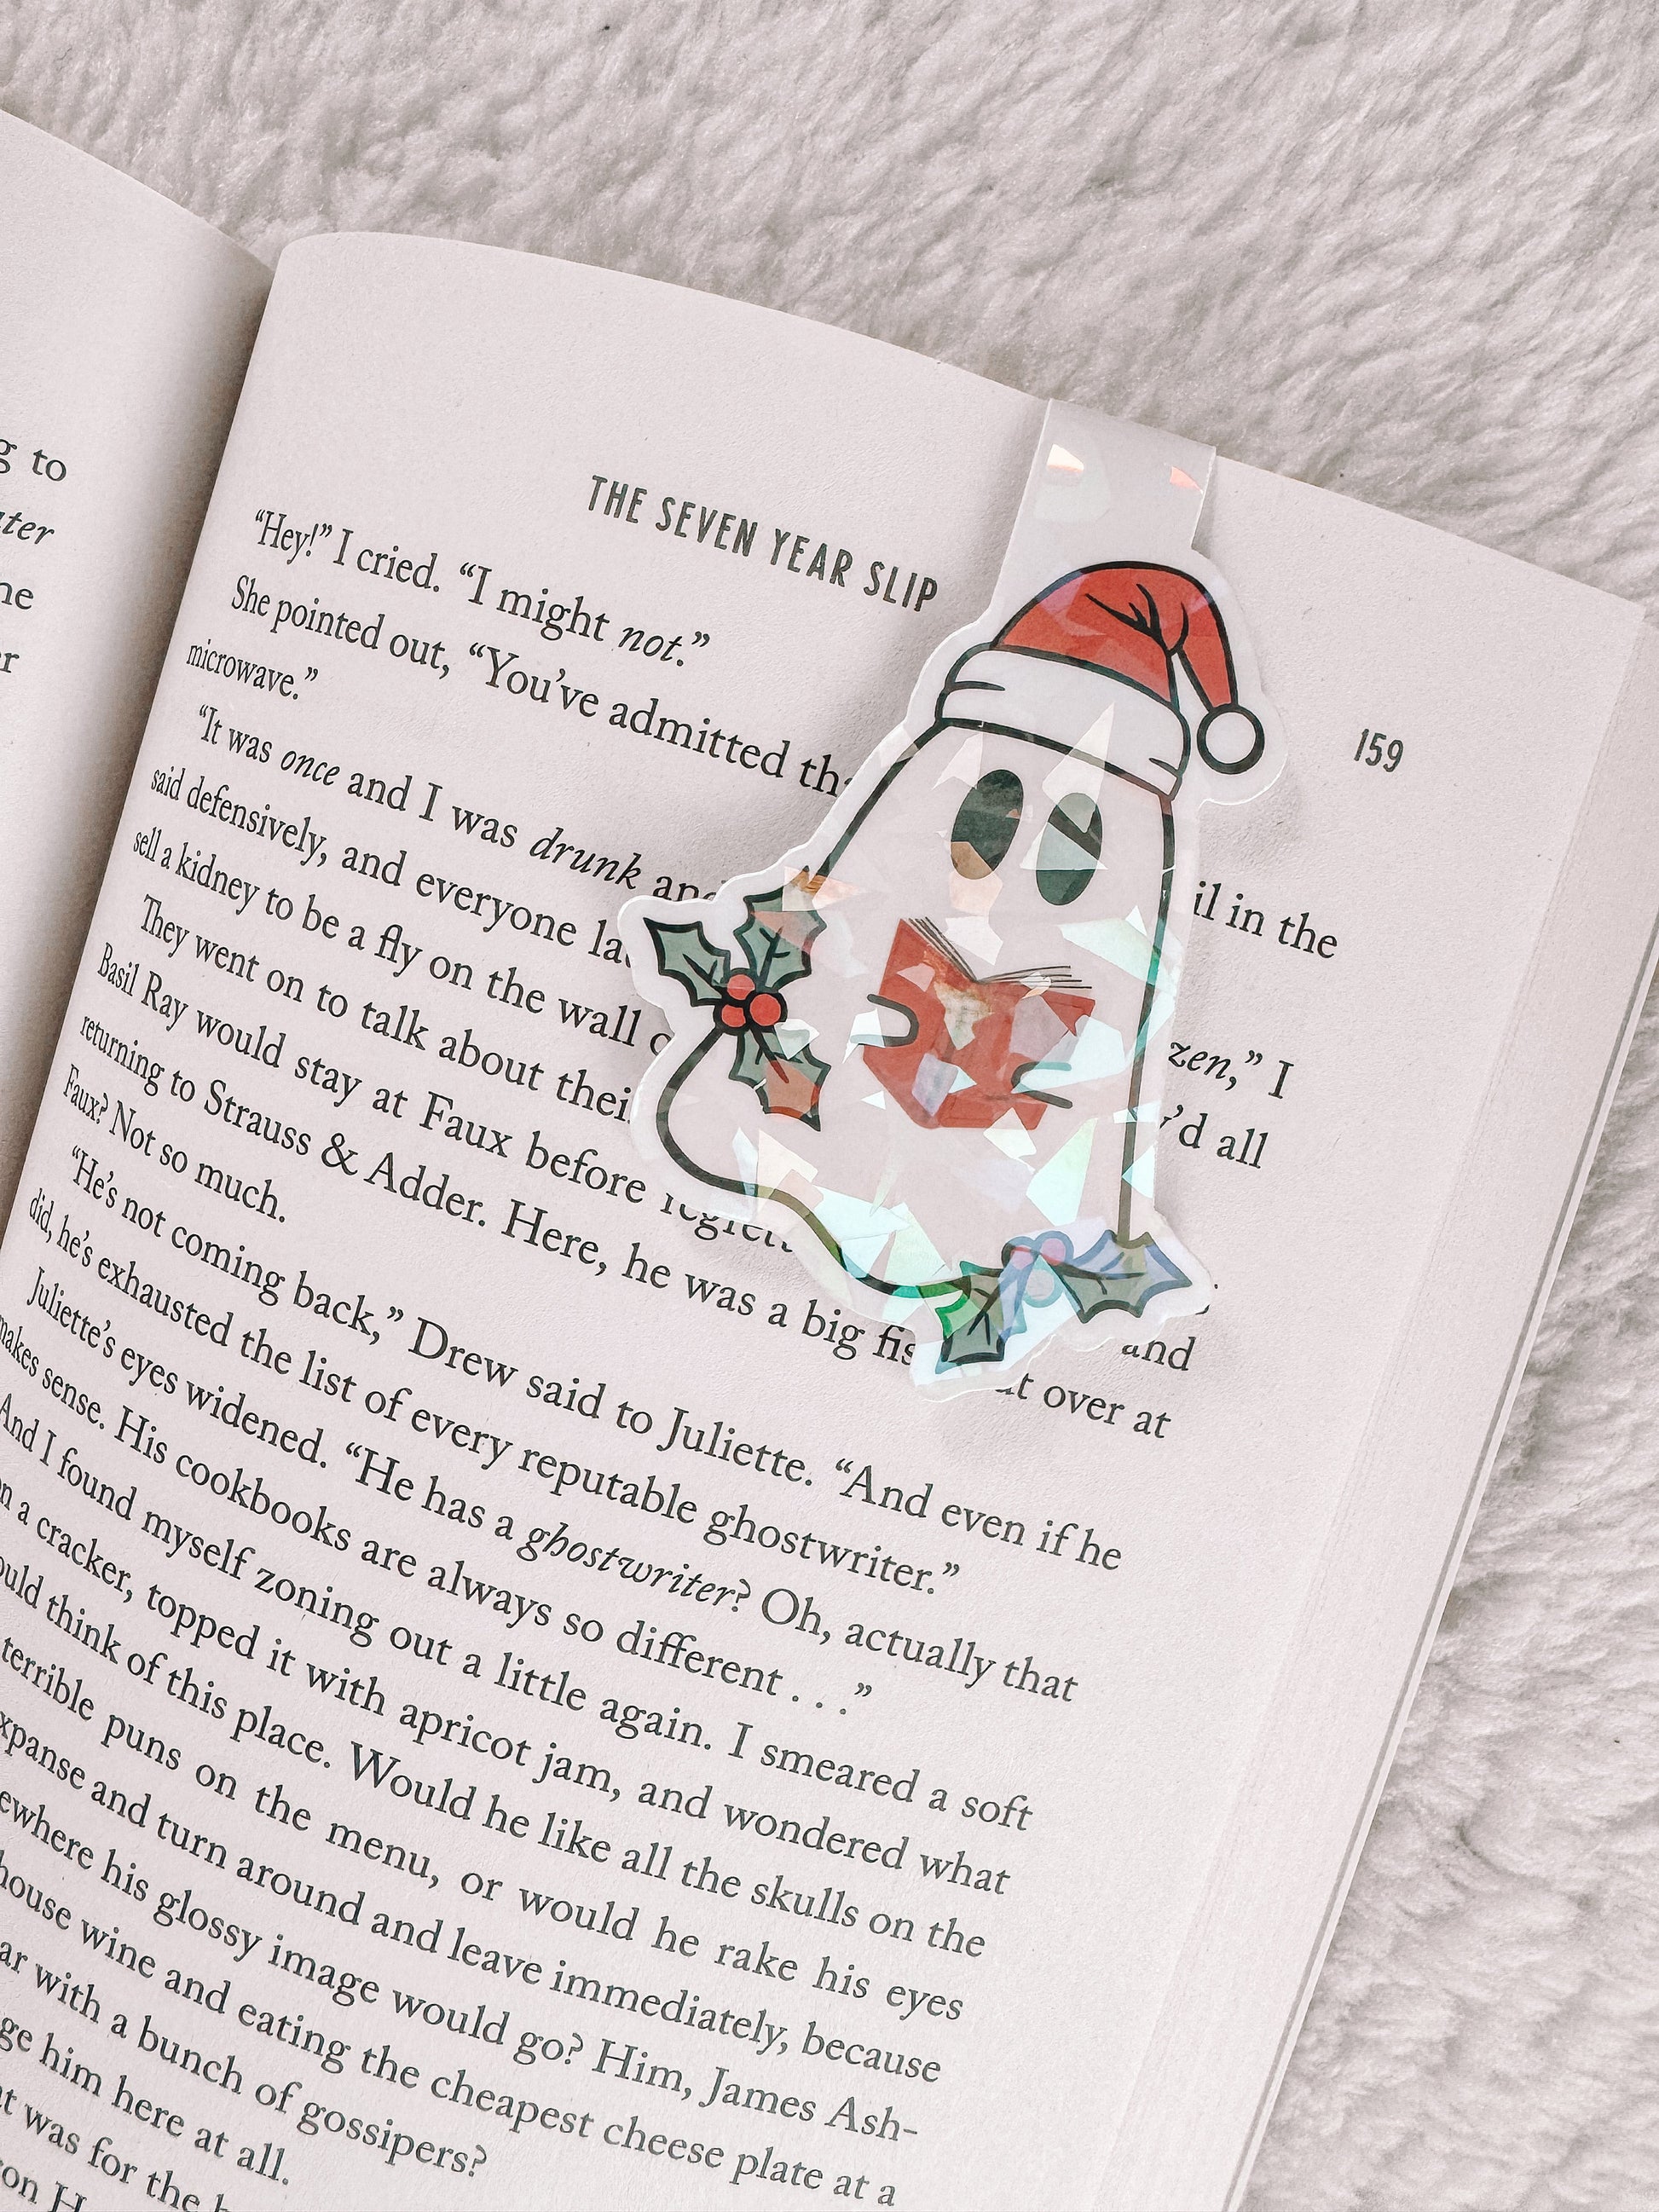 g to
ter
he
r
THE SEVEN YEAR SLIP
159
“Hey!” I cried. “I might not.”
She pointed out, “You’ve admitted il in the
microwave.”
“It was once and I was drunk and zen,” I
said defensively, and everyone y’d all
sell a kidney to be a fly on the wall
They went on to talk about their
Basil Ray would stay at Faux before and
returning to Strauss & Adder. Here, he was a big over at
Faux? Not so much.
“He’s not coming back,” Drew said to Juliette. “And even if he
did, he’s exhausted the list of every reputable ghostwriter.”
Juliette’s eyes widened. “He has a ghostwriter? Oh, actually that
makes sense. His cookbooks are always so different . . .”
And I found myself zoning out a little again. I smeared a soft
on a cracker, topped it with apricot jam, and wondered what
ould think of this place. Would he like all the skulls on the
terrible puns on the menu, or would he rake his eyes
xpanse and turn around and leave immediately, because
ewhere his glossy image would go? Him, James Ash-
house wine and eating the cheapest cheese plate at a
ar with a bunch of gossipers?
ge him here at all.
t was for the
on H